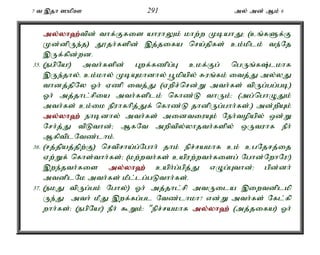 7 வ இதா ஸமிஊ 291 அல் அன் ஆம் 6
அல்லாஹ்வின் வாக்குகளை யாராலும் மாற்ற முடியாது. (உங்களுக்கு
முன்னிருந்த) தூதர்களின் இத்தகைய செய்திகள் உம்மிடம் வந்தே
இருக்கின்றன.
35. (நபியே!) அவர்களின் புறக்கணிப்பு உமக்குப் பெருங்கஷ்டமாக
இருந்தால், உம்மால் முடியுமானால் பூமியில் சுரங்கம் வைத்து அல்லது
வானத்திலே ஓர் ஏணி வைத்து (ஏறிச்சென்று அவர்கள் விருப்பப்படி)
ஓர் அத்தாட்சியை அவர்களிடம் கொண்டு வாரும்; (அப்பொழுதும்
அவர்கள் உம்மை நிராகரித்துக் கொண்டு தானிருப்பார்கள்.) அன்றியும்
அல்லாஹ் நாடினால் அவர்கள் அனைவரையும் நேர்வழியில் ஒன்று
சேர்த்து விடுவான்; ஆகவே அறிவில்லாதவர்களில் ஒருவராக நீர்
ஆகிவிடவேண்டாம்.
36. (சத்தியத்திற்கு) செவிசாய்ப்போர் தாம் நிச்சயமாக உம் உபதேசத்தை
ஏற்றுக் கொள்வார்கள்; (மற்றவர்கள் உயிரற்றவர்களைப் போன்றோரே!)
இறந்தவர்களை அல்லாஹ் உயிர்ப்பித்து எழுப்புவான்; பின்னர்
அவனிடமே அவர்கள் மீட்டப்படுவார்கள்.
37. (நமது விருப்பம் போல்) ஓர் அத்தாட்சி அவருடைய இறைவனிடமி
ருந்து அவர் மீது இறக்கப்பட வேண்டாமா? என்று அவர்கள் கேட்கி
றார்கள்; (நபியே!) நீர் கூறும்: "நிச்சயமாக அல்லாஹ் (அத்தகைய) ஓர்